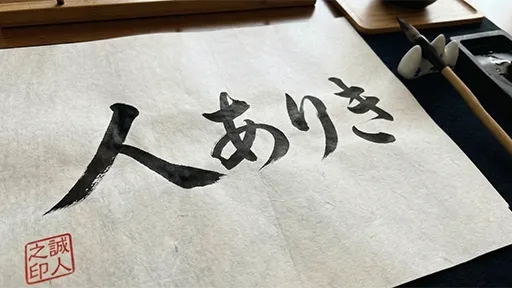 人ありき
誠人
之印